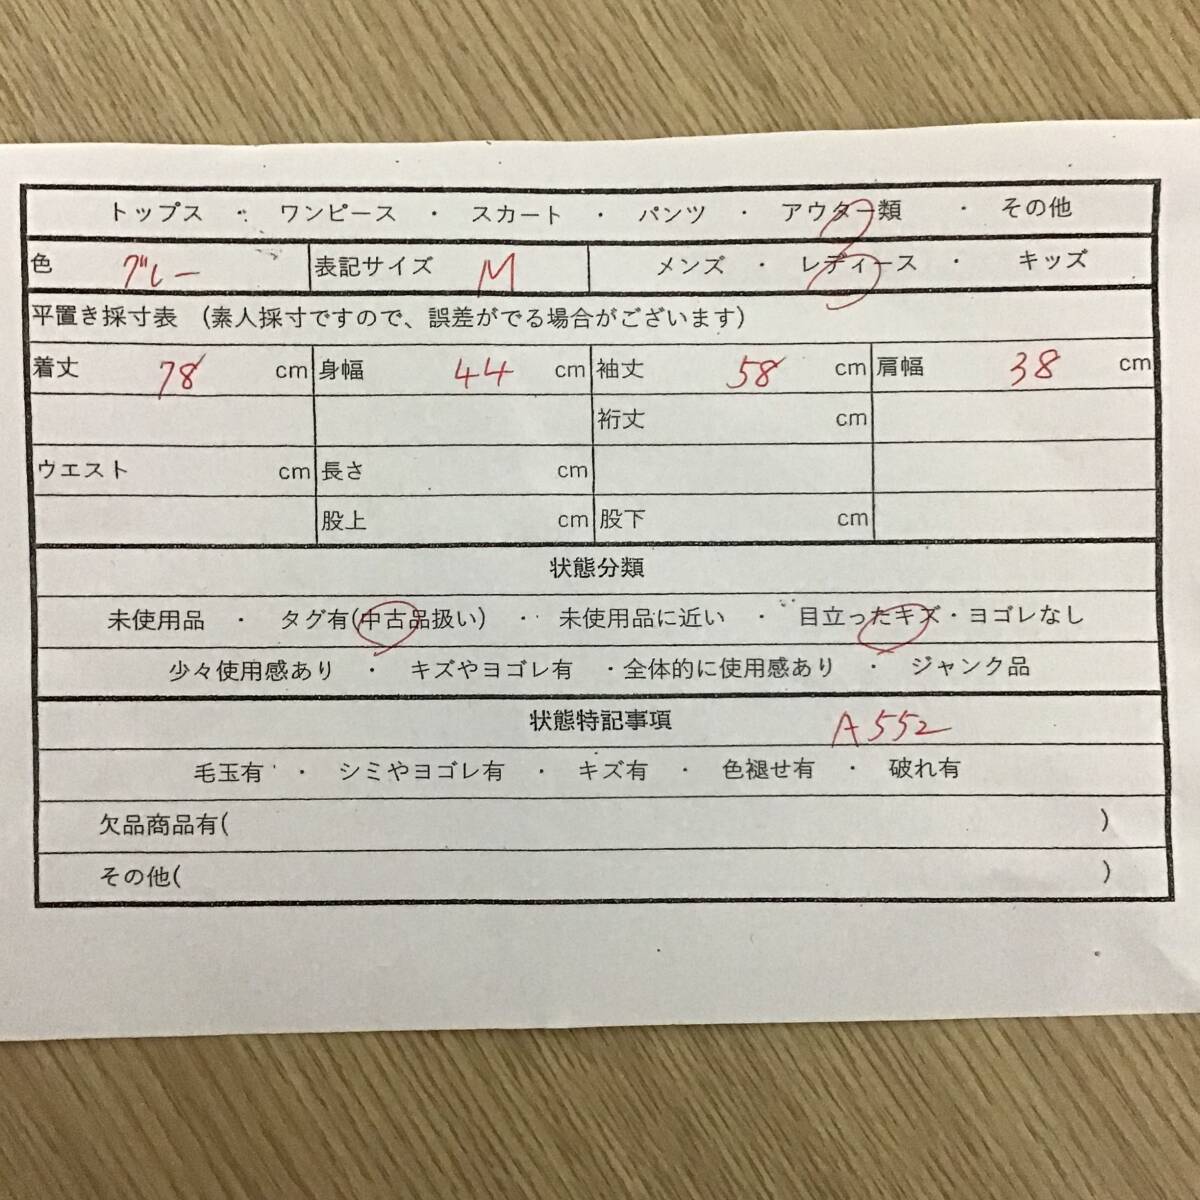 トップス ・ ワンピース ・ スカート ・ パンツ ・ アウター類 ・ その他
色 グレー 表記サイズ M メンズ ・ レディース ・ キッズ
平置き採寸表 (素人採寸ですので、誤差がでる場合がございます)
着丈 78 cm 身幅 44 cm 袖丈 58 cm 肩幅 38 cm
裄丈 cm
ウエスト cm 長さ cm
股上 cm 股下 cm
状態分類
未使用品 ・ タグ有(中古品扱い) ・ 未使用品に近い ・ 目立ったキズ・ヨゴレなし
少々使用感あり ・ キズやヨゴレ有 ・全体的に使用感あり ・ ジャンク品
状態特記事項 A552
毛玉有 ・ シミやヨゴレ有 ・ キズ有 ・ 色褪せ有 ・ 破れ有
欠品商品有( )
その他( )